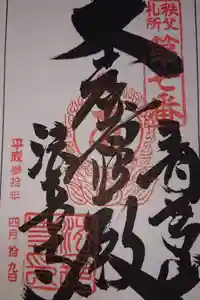 秩父
札所
第七番
青苔山
殿
法長寺
平成参拾年 四月拾九日